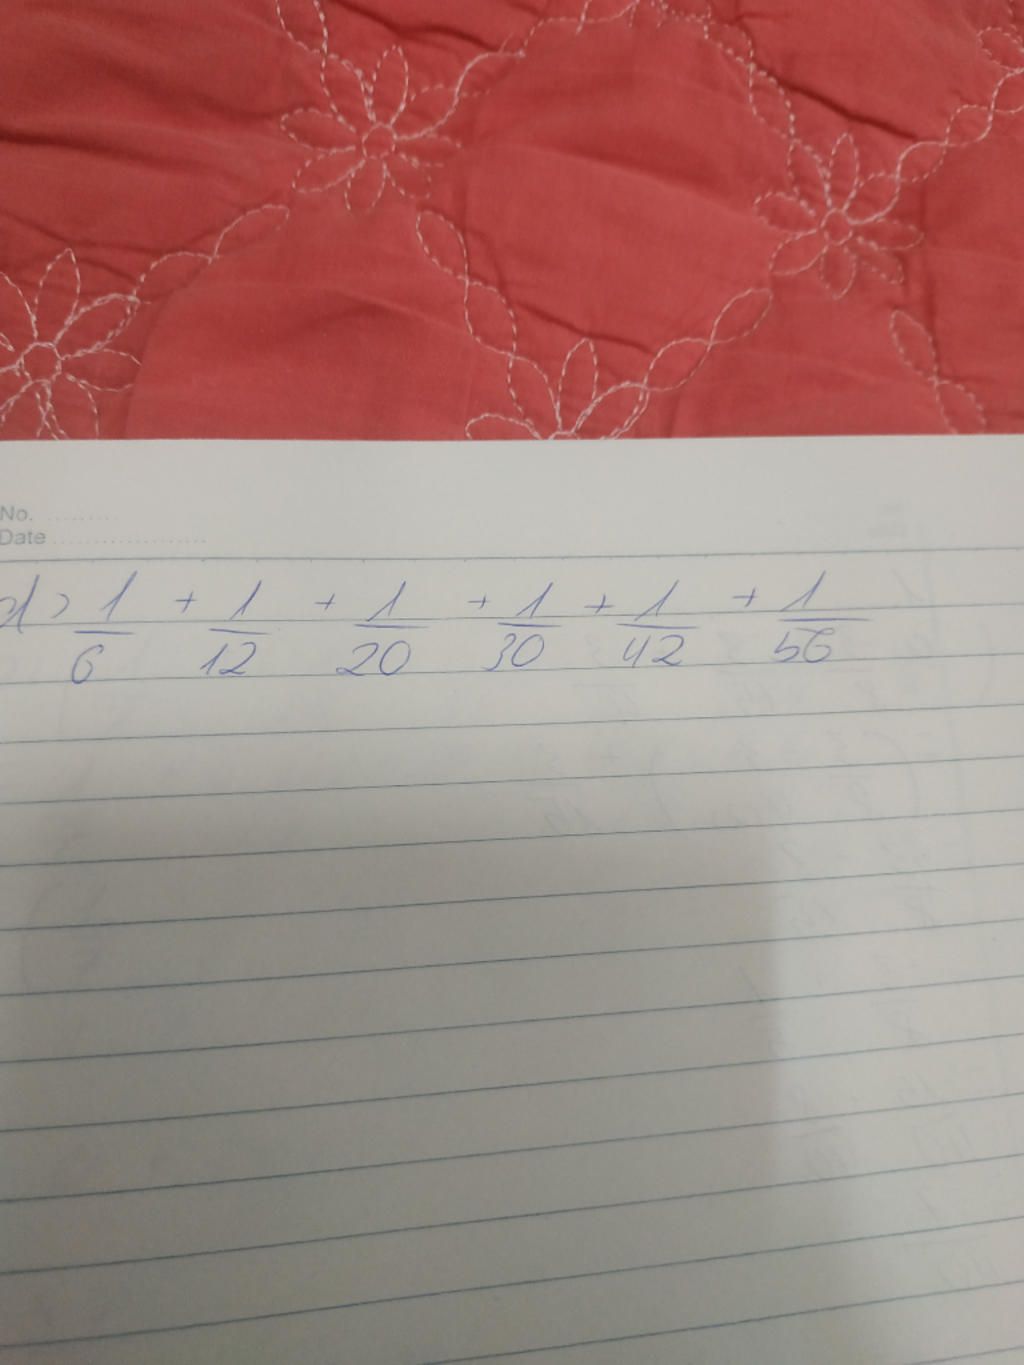 No. .........
Date ..................
d> 1/6 + 1/12 + 1/20 + 1/30 + 1/42 + 1/56